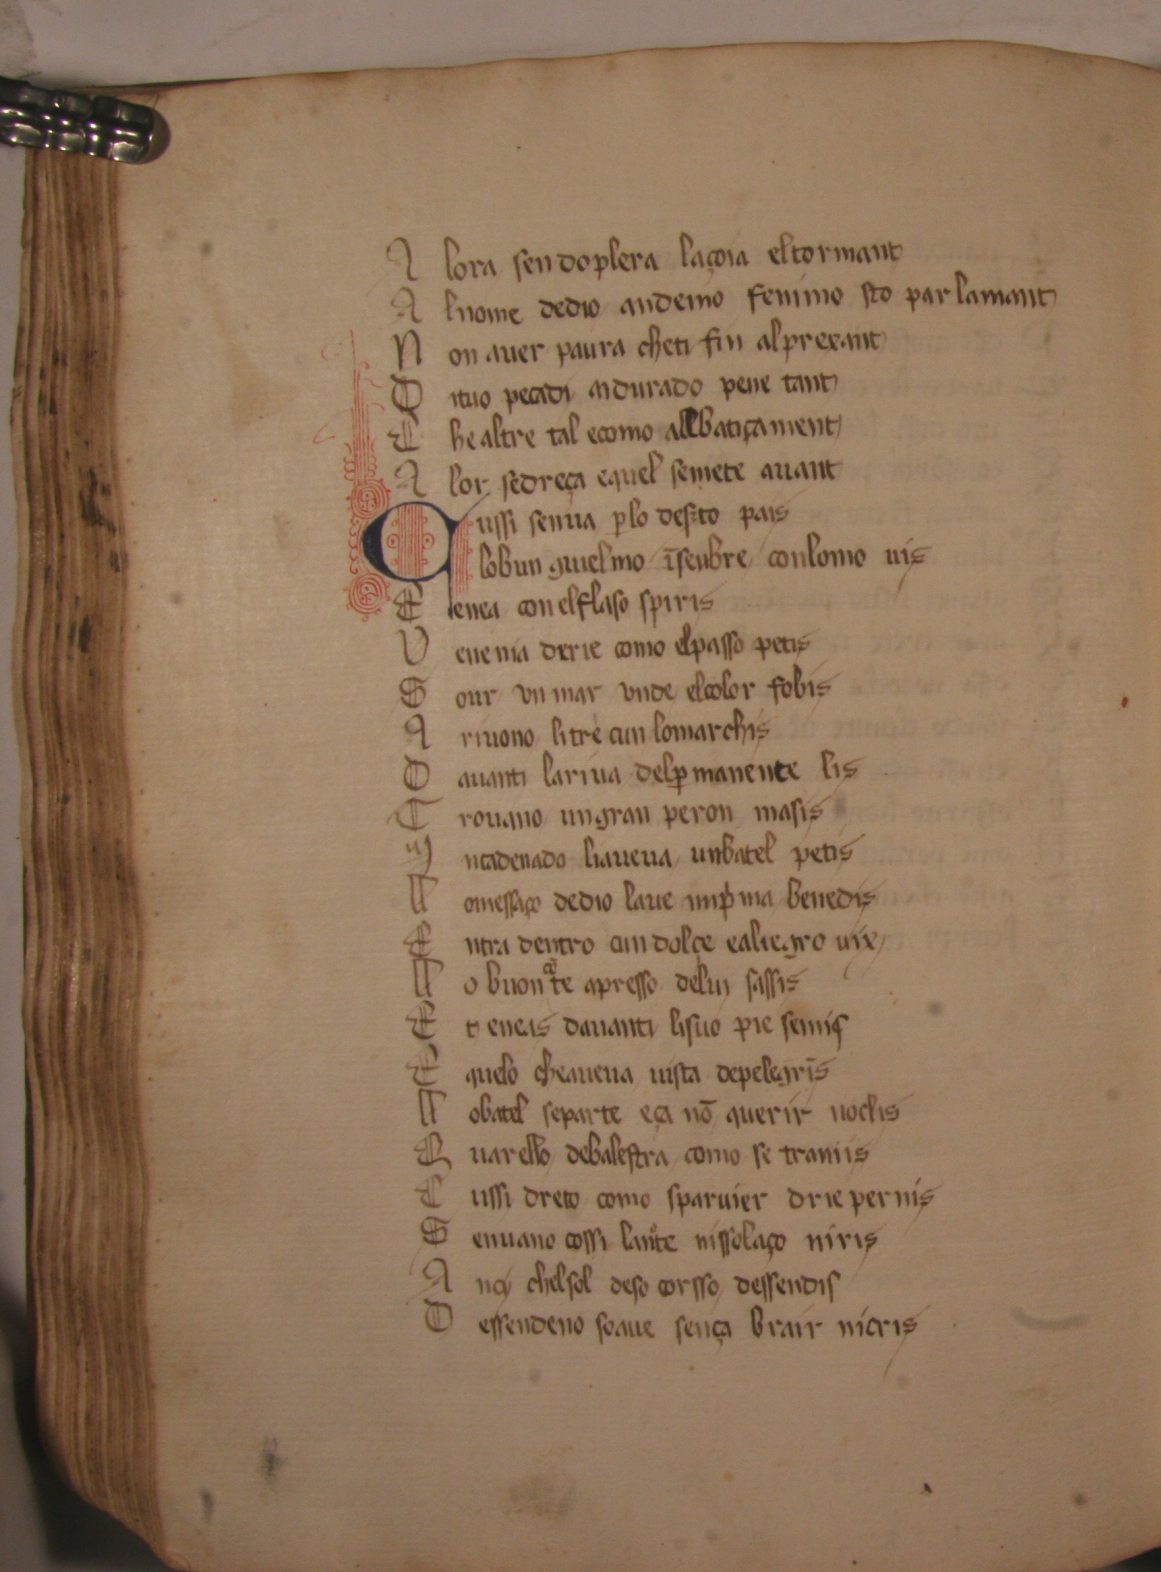 A lora sen doplera laçoia el tormant
A lnome dedio andemo fenimo sto parlamant
N on auer paura cheti fin alprexant
D ituo pecadi aidurado pene tant
C he altre tal ecomo albatiçament
A lor sedreça equel semete auant
Q ussi senua ꝑlo desto pais
lo bun guielmo īsenbre conlomo uis
E enea conelflaso spiris
V ene nia drie como elpasso petis
S our vn mar vnde elcolor fo bis
A riuono litre cun lomarchis
D auanti lariua delꝑmanente lis
T rouano un gran peron masis
I ncadenado liaueua unbatel petis
L omessaço dedio laue inpͥma benedis
E ntra dentro cun dolçe ealiegro uix
L o buon qͣte apresso delui sassis
E t eneas dauanti lisuo pie semis
E quelo cheaueua uista depelegrīs
L obatel separte eça nō querir noclis
Q uarello debalestra como se tramis
C ussi dreto como sparuier drie pernis
S enuano cossi lanͦte nissolaço niris
A nçi chelsol deso corsso dessendis
D essendeno soaue sença brair nicris